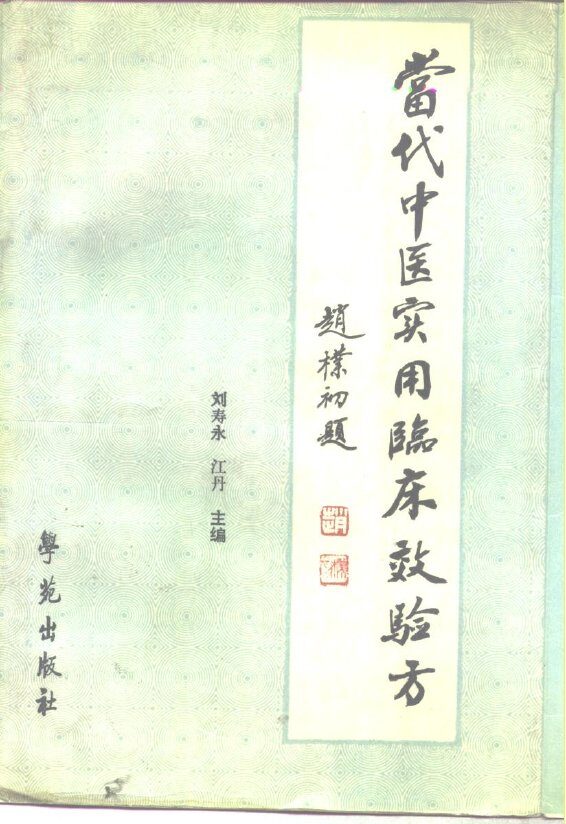 當代中医实用臨床效验方
趙樸初题
刘寿永 江丹 主编
學苑出版社